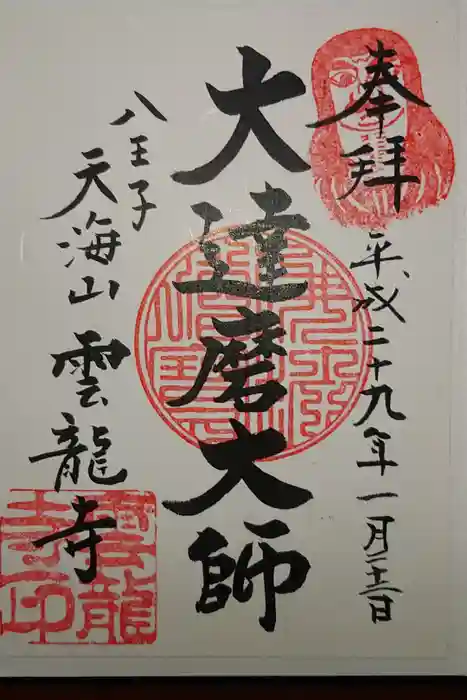 奉拝
平成二十九年一月二十二日
大達磨大師
八王子
天海山 雲龍寺
雲龍寺印